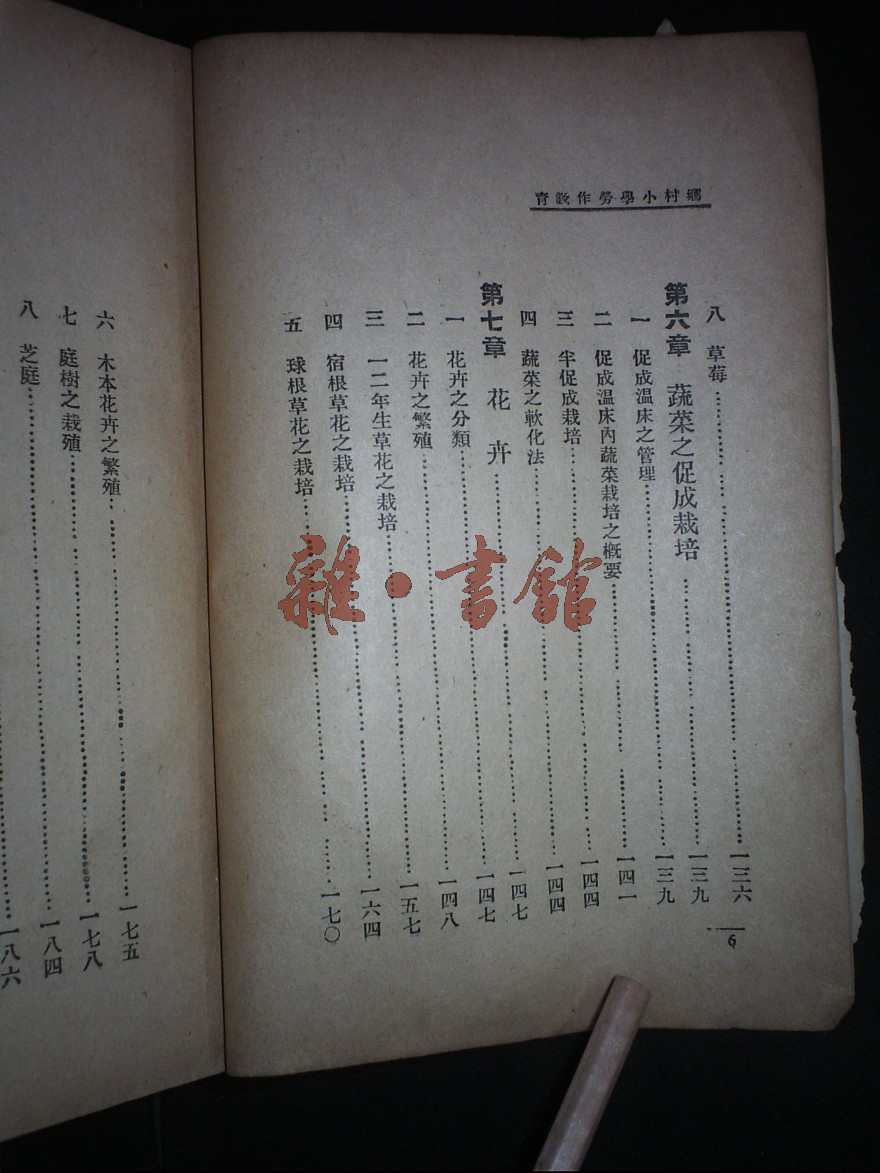 鄉村小學勞作教育
八 草莓……一三六
第六章 蔬菜之促成栽培……一三九
一 促成溫床之管理……一三九
二 促成溫床內蔬菜栽培之概要……一四一
三 半促成栽培……一四四
四 蔬菜之軟化法……一四四
第七章 花卉……一四七
一 花卉之分類……一四七
二 花卉之繁殖……一四八
三 一二年生草花之栽培……一五七
四 宿根草花之栽培……一六四
五 球根草花之栽培……一七〇
6
六 木本花卉之繁殖……一七五
七 庭樹之栽殖……一七八
八 芝庭……一八四
一八六
雜·書館